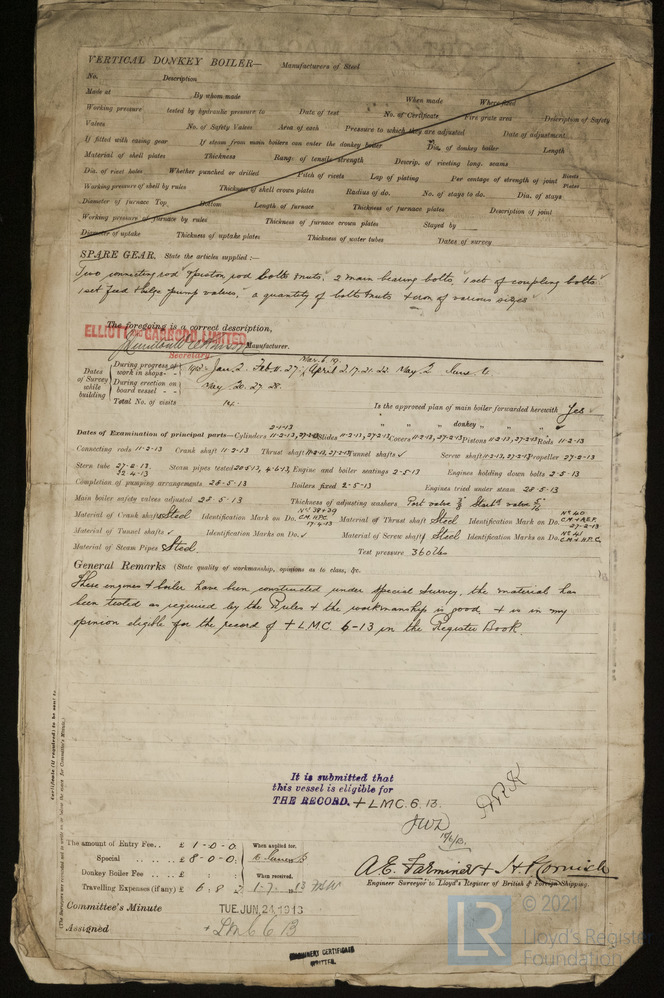 VERTICAL DONKEY BOILER— Manufacturers of Steel
No. Description
Made at By whom made When made Where fixed
Working pressure tested by hydraulic pressure to Date of test No. of Certificate Fire grate area Description of Safety
Valves No. of Safety Valves Area of each Pressure to which they are adjusted Date of adjustment
If fitted with easing gear If steam from main boilers can enter the donkey boiler Dia. of donkey boiler Length
Material of shell plates Thickness Range of tensile strength Descrip. of riveting long. seams
Dia. of rivet holes Whether punched or drilled Pitch of rivets Lap of plating Per centage of strength of joint Rivets Plates
Working pressure of shell by rules Thickness of shell crown plates Radius of do. No. of stays to do. Dia. of stays
Diameter of furnace Top Bottom Length of furnace Thickness of furnace plates Description of joint
Working pressure of furnace by rules Thickness of furnace crown plates Stayed by
Diameter of uptake Thickness of uptake plates Thickness of water tubes Dates of survey
SPARE GEAR. State the articles supplied :—
Two connecting rod & piston rod bolts & nuts, 2 main bearing bolts, 1 set of coupling bolts
1 set Feed & bilge pump valves, a quantity of bolts & nuts & iron of various sizes
The foregoing is a correct description,
ELLIOTT AND GARROOD LIMITED
Manufacturer.
Secretary.
Dates of Survey while building
During progress of work in shops - - 1913 Jan. 2. Feb. 11. 27. Mar. 6. 19. April 2. 17. 21. 22. May. 2 June 6
During erection on board vessel - - May. 20. 27. 28.
Total No. of visits 14.
Is the approved plan of main boiler forwarded herewith Yes
" " " donkey " "
Dates of Examination of principal parts—Cylinders 2-1-13 11-2-13, 27-2-13 Slides 11-2-13, 27-2-13 Covers 11-2-13, 27-2-13 Pistons 11-2-13, 27-2-13 Rods 11-2-13
Connecting rods 11-2-13 Crank shaft 11-2-13 Thrust shaft 11-2-13, 27-2-13 Tunnel shafts ✓ Screw shaft 11-2-13, 27-2-13 Propeller 27-2-13
Stern tube 27-2-13 22-4-13 Steam pipes tested 20-5-13, 4-6-13, Engine and boiler seatings 2-5-13 Engines holding down bolts 2-5-13
Completion of pumping arrangements 28-5-13 Boilers fixed 2-5-13 Engines tried under steam 28-5-13
Main boiler safety valves adjusted 28-5-13 Thickness of adjusting washers Port valve Starbd valve
Material of Crank shaft Steel Identification Mark on Do. Nos 38 & 39 C.M. H.P.C. 17-4-13 Material of Thrust shaft Steel Identification Mark on Do. No 40 C.M. & A.E.F. 27-2-13
Material of Tunnel shafts ✓ Identification Marks on Do. ✓ Material of Screw shafts Steel Identification Marks on Do. No 41 C.M & H.P.C.
Material of Steam Pipes Steel. Test pressure 360 lbs
General Remarks (State quality of workmanship, opinions as to class, &c.
These engines & boiler have been constructed under special survey, the material has
been tested as required by the Rules & the workmanship is good & is in my
opinion eligible for the record of + LMC 6-13 in the Register Book.
It is submitted that
this vessel is eligible for
THE RECORD. + LMC. 6. 13.
The amount of Entry Fee.. £ 1-0-0. When applied for.
Special .. .. £ 8-0-0. 6 June 13
Donkey Boiler Fee .. .. £ : : When received.
Travelling Expenses (if any) £ 6. 8. 2 1-7-13
A.E. Farminer & H.P. Cornish
Engineer Surveyor to Lloyd's Register of British & Foreign Shipping.
Committee's Minute TUE. JUN. 24. 1913
Assigned + LMC 6 13
MACHINERY CERTIFICATE
WRITTEN.
LR © 2021
Lloyd's Register
Foundation